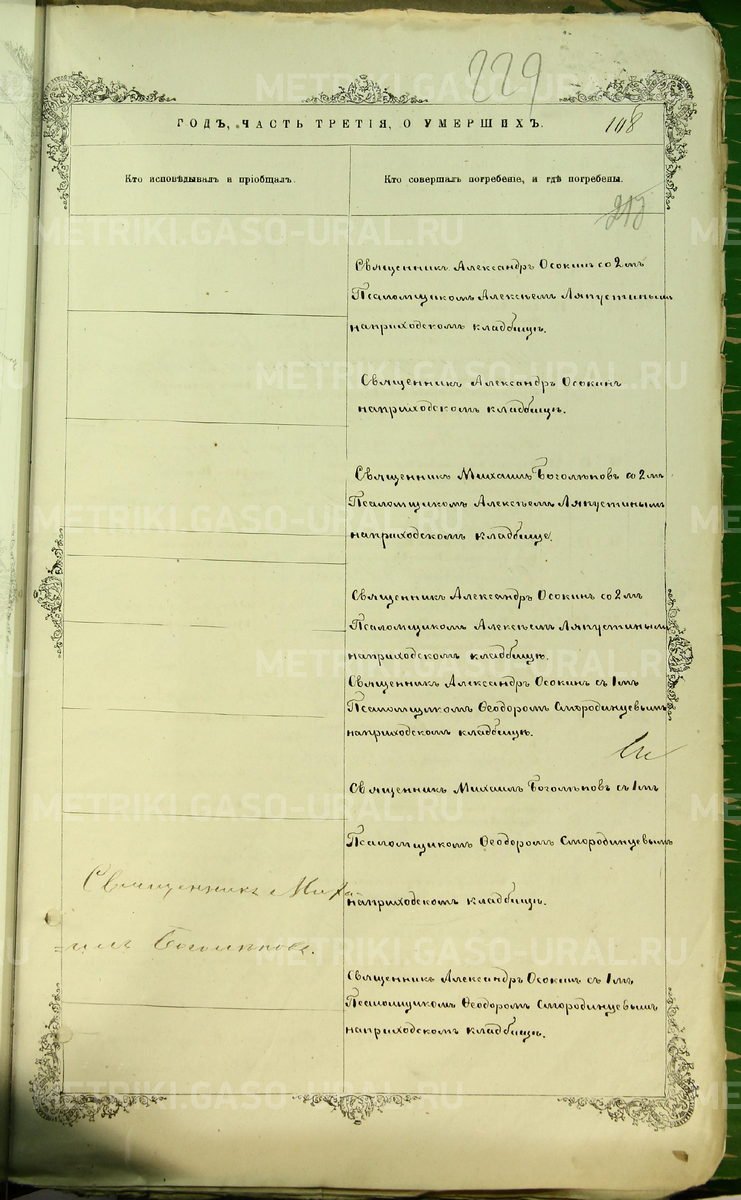 229
ГОДЪ, ЧАСТЬ ТРЕТІЯ, О УМЕРШИХЪ.
108
Кто исповѣдывалъ и пріобщалъ.
Кто совершалъ погребеніе, и гдѣ погребены.
213
Священникъ Александръ Осокинъ со 2мъ
Псаломщикомъ Алексѣемъ Ляпустинымъ
наприходскомъ кладбищѣ.
Священникъ Александръ Осокинъ
наприходскомъ кладбищѣ.
Священникъ Михаилъ Боголѣповъ со 2мъ
Псаломщикомъ Алексѣемъ Ляпустинымъ
наприходскомъ кладбище.
Священникъ Александръ Осокинъ со 2мъ
Псаломщикомъ Алексѣемъ Ляпустинымъ
наприходскомъ кладбищѣ.
Священникъ Александръ Осокинъ съ 1мъ
Псаломщикомъ Ѳеодоромъ Смородинцевымъ
наприходскомъ кладбищѣ.
Священникъ Михаилъ Боголѣповъ съ 1мъ
Псаломщикомъ Ѳеодоромъ Смородинцевымъ
наприходскомъ кладбищѣ.
Священникъ Миха-
илъ Боголѣповъ.
Священникъ Александръ Осокинъ съ 1мъ
Псаломщикомъ Ѳеодоромъ Смородинцевымъ
наприходскомъ кладбищѣ.
METRIKI.GASO-URAL.RU